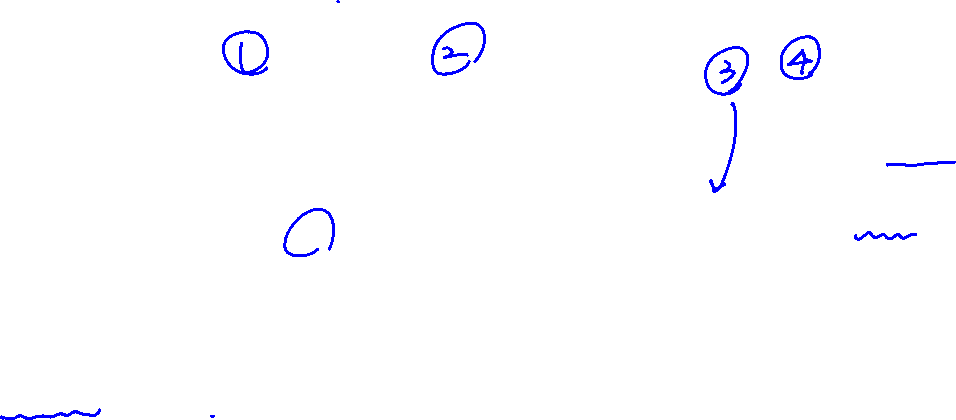 ① ② ③ ④